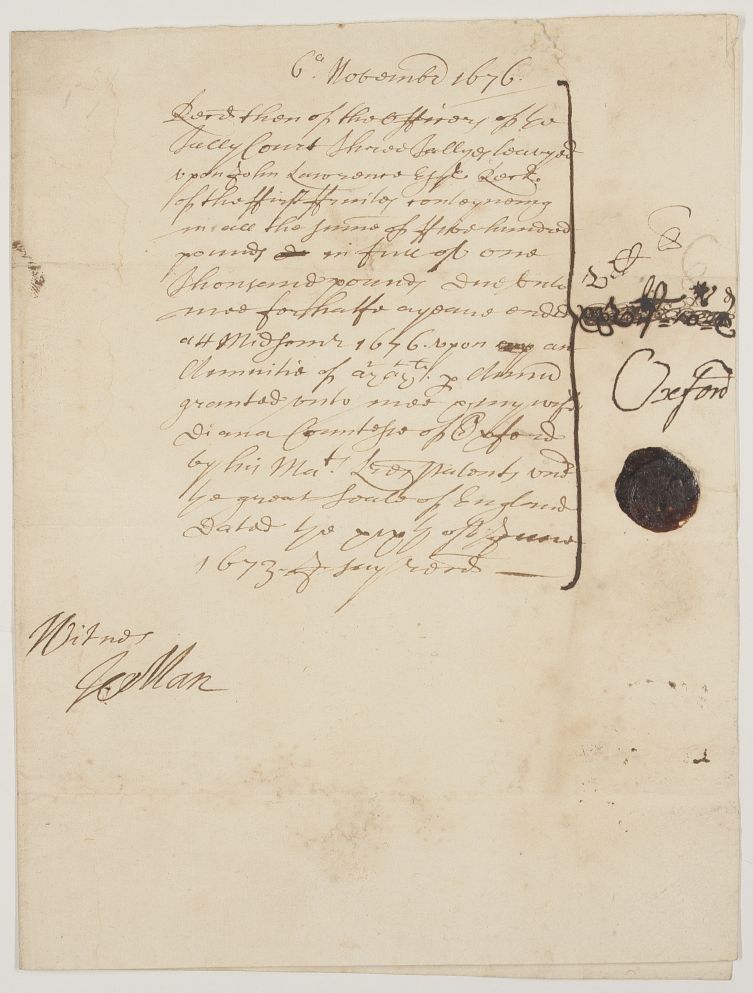 6o. Novembr 1676.
Recd then of the Officers of ye
Tally Court three Tallyes leavyed
upon John Lawrence Esqr. Recr.
of the ffirst ffruites conteyneing
in all the sume of ffive hundred
pounds in full of one
thousand pounds due unto
mee for halfe a yeare ended
att Midsomr 1676. upon an
Annuitie of p Annu
granted unto mee my wife
Diana Countesse of Oxford
by his Mats. Lres Patents undr
ye greate Seale of England
Dated ye of June
1673. I say recd
li s d
500
Oxford
Witnes
Man